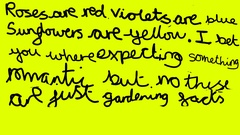 Roses are red violets are blue
Sunflowers are yellow. I bet
you where expecting something
romantic but no these
are just gardening facts